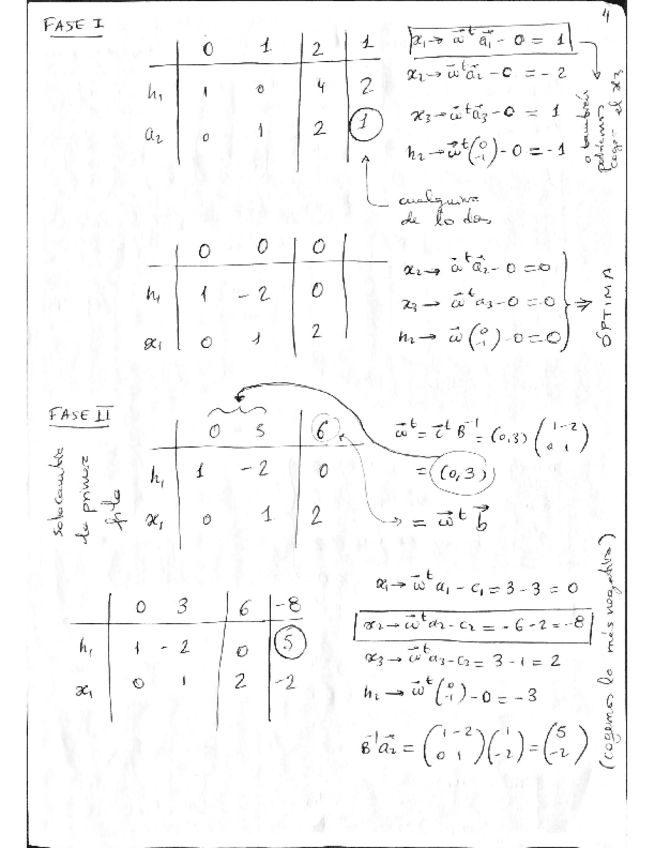 4
FASE I
0 1 2 1
h₁ 1 0 4 2
a₂ 0 1 2 1
cualquiera
de lo dos
x₁ → ω̄ᵗ ā₁ - 0 = 1
x₂ → ω̄ᵗ ā₂ - 0 = -2
x₃ → ω̄ᵗ ā₃ - 0 = 1
h₂ → ω̄ᵗ (0 -1) - 0 = -1
o también
podríamos
coger el x₃
0 0 0
h₁ 1 -2 0
x₁ 0 1 2
x₂ → ω̄ᵗ ā₂ - 0 = 0
x₃ → ω̄ᵗ a₃ - 0 = 0
h₂ → ω̄ (0 -1) - 0 = 0
⇒ ÓPTIMA
FASE II
solo cambia
la primera
fila
0 3 6
h₁ 1 -2 0
x₁ 0 1 2
ω̄ᵗ = c̄ᵗ B⁻¹ = (0,3) (1 -2 0 1)
= (0,3)
= ω̄ᵗ b̄
0 3 6 -8
h₁ 1 -2 0 5
x₁ 0 1 2 -2
x₁ → ω̄ᵗ a₁ - c₁ = 3 - 3 = 0
x₂ → ω̄ᵗ a₂ - c₂ = -6 - 2 = -8
x₃ → ω̄ᵗ a₃ - c₃ = 3 - 1 = 2
h₂ → ω̄ᵗ (0 -1) - 0 = -3
B⁻¹ ā₂ = (1 -2 0 1) (1 -2) = (5 -2)
(cogemos lo más negativo)